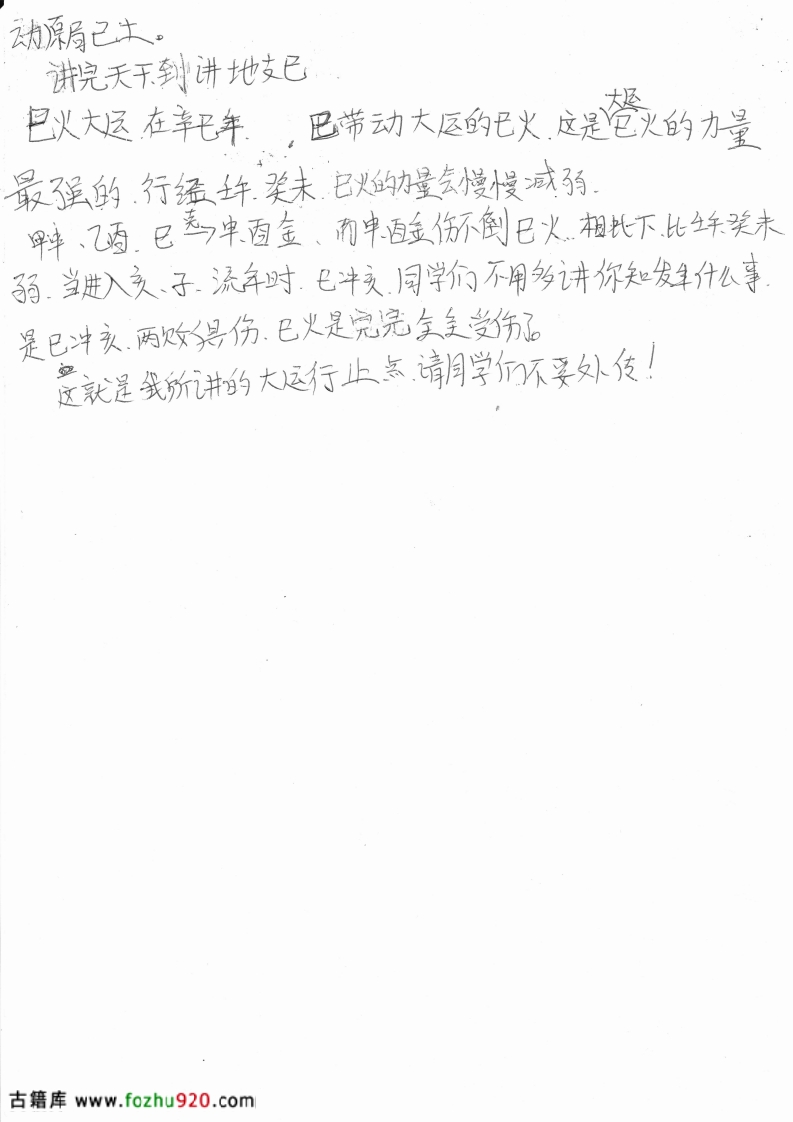 动原局己土。
讲完天干到讲地支巳
巳火大运.在辛巳年. 巳带动大运的巳火.这是大运巳火的力量
最强的.行经壬午.癸未.巳火的力量会慢慢减弱.
甲申、乙酉.巳克→申酉金、而申酉金伤不倒巳火.相比下.比壬午癸未
弱.当进入亥、子.流年时.巳冲亥.同学们不用多讲你知发生什么事.
是巳冲亥.两败俱伤.巳火是完完全全受伤了。
这就是我所讲的大运行止点.请同学们不要外传!
古籍库 www.fozhu920.com